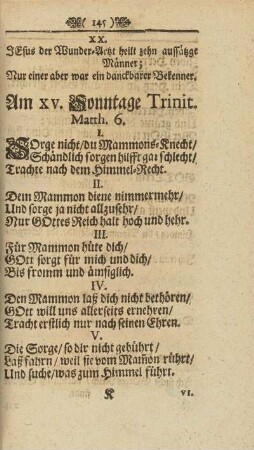 ( 145 )
XX.
JEsus der Wunder-Artzt heilt zehn aussätzge
Männer;
Nur einer aber war ein danckbarer Bekenner.
Am xv. Sonntage Trinit.
Matth. 6.
I.
SOrge nicht/ du Mammons-Knecht/
Schändlich sorgen hilfft gar schlecht/
Trachte nach dem Himmel-Recht.
II.
Dem Mammon diene nimmermehr/
Und sorge ja nicht allzusehr/
Nur GOttes Reich halt hoch und hehr.
III.
Für Mammon hüte dich/
GOtt sorgt für mich und dich/
Bis fromm und ämsiglich.
IV.
Den Mammon laß dich nicht bethören/
GOtt will uns allerseits ernehren/
Tracht erstlich nur nach seinen Ehren.
V.
Die Sorge/ so dir nicht gebührt/
Laß fahrn/ weil sie vom Mam̃on rührt/
Und suche/ was zum Himmel führt.
K VI.